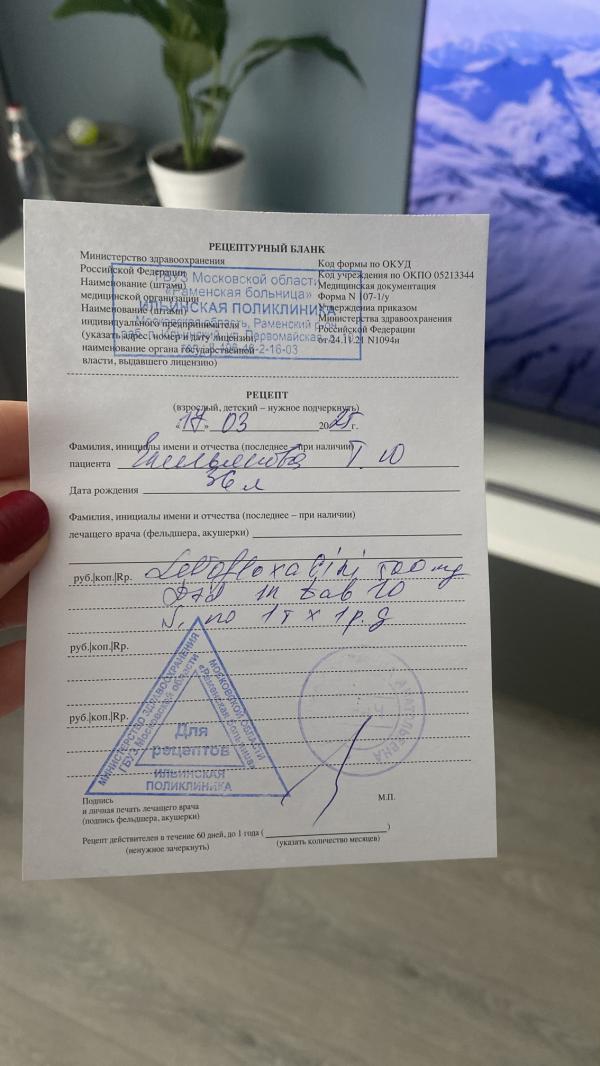 РЕЦЕПТУРНЫЙ БЛАНК
Министерство здравоохранения
Российской Федерации
Наименование (штамп)
медицинской организации
Наименование (штамп)
индивидуального предпринимателя
(указать адрес, номер и дату лицензии,
наименование органа государственной
власти, выдавшего лицензию)
Код формы по ОКУД
Код учреждения по ОКПО 05213344
Медицинская документация
Форма N 107-1/у
Утверждена приказом
Министерства здравоохранения
Российской Федерации
от 24.11.21 N1094н
ГБУЗ Московской области
«Раменская больница»
ИЛЬИНСКАЯ ПОЛИКЛИНИКА
Московская область, Раменский
Первомайская
РЕЦЕПТ
(взрослый, детский – нужное подчеркнуть)
«17» 03 2025 г.
Фамилия, инициалы имени и отчества (последнее – при наличии)
пациента Т. Ю
Дата рождения 36 л
Фамилия, инициалы имени и отчества (последнее – при наличии)
лечащего врача (фельдшера, акушерки)
руб.|коп.|Rp. Levofloxacini 500 mg
Dtd in tab 10
S. по 1 т х 1 р. д
руб.|коп.|Rp.
руб.|коп.|Rp.
МИНИСТЕРСТВО ЗДРАВООХРАНЕНИЯ
МОСКОВСКОЙ ОБЛАСТИ
ГБУЗ Московской области
«Раменская больница»
Для
рецептов
ИЛЬИНСКАЯ
ПОЛИКЛИНИКА
Подпись
и личная печать лечащего врача
(подпись фельдшера, акушерки)
М.П.
Рецепт действителен в течение 60 дней, до 1 года (
)
(ненужное зачеркнуть)
(указать количество месяцев)